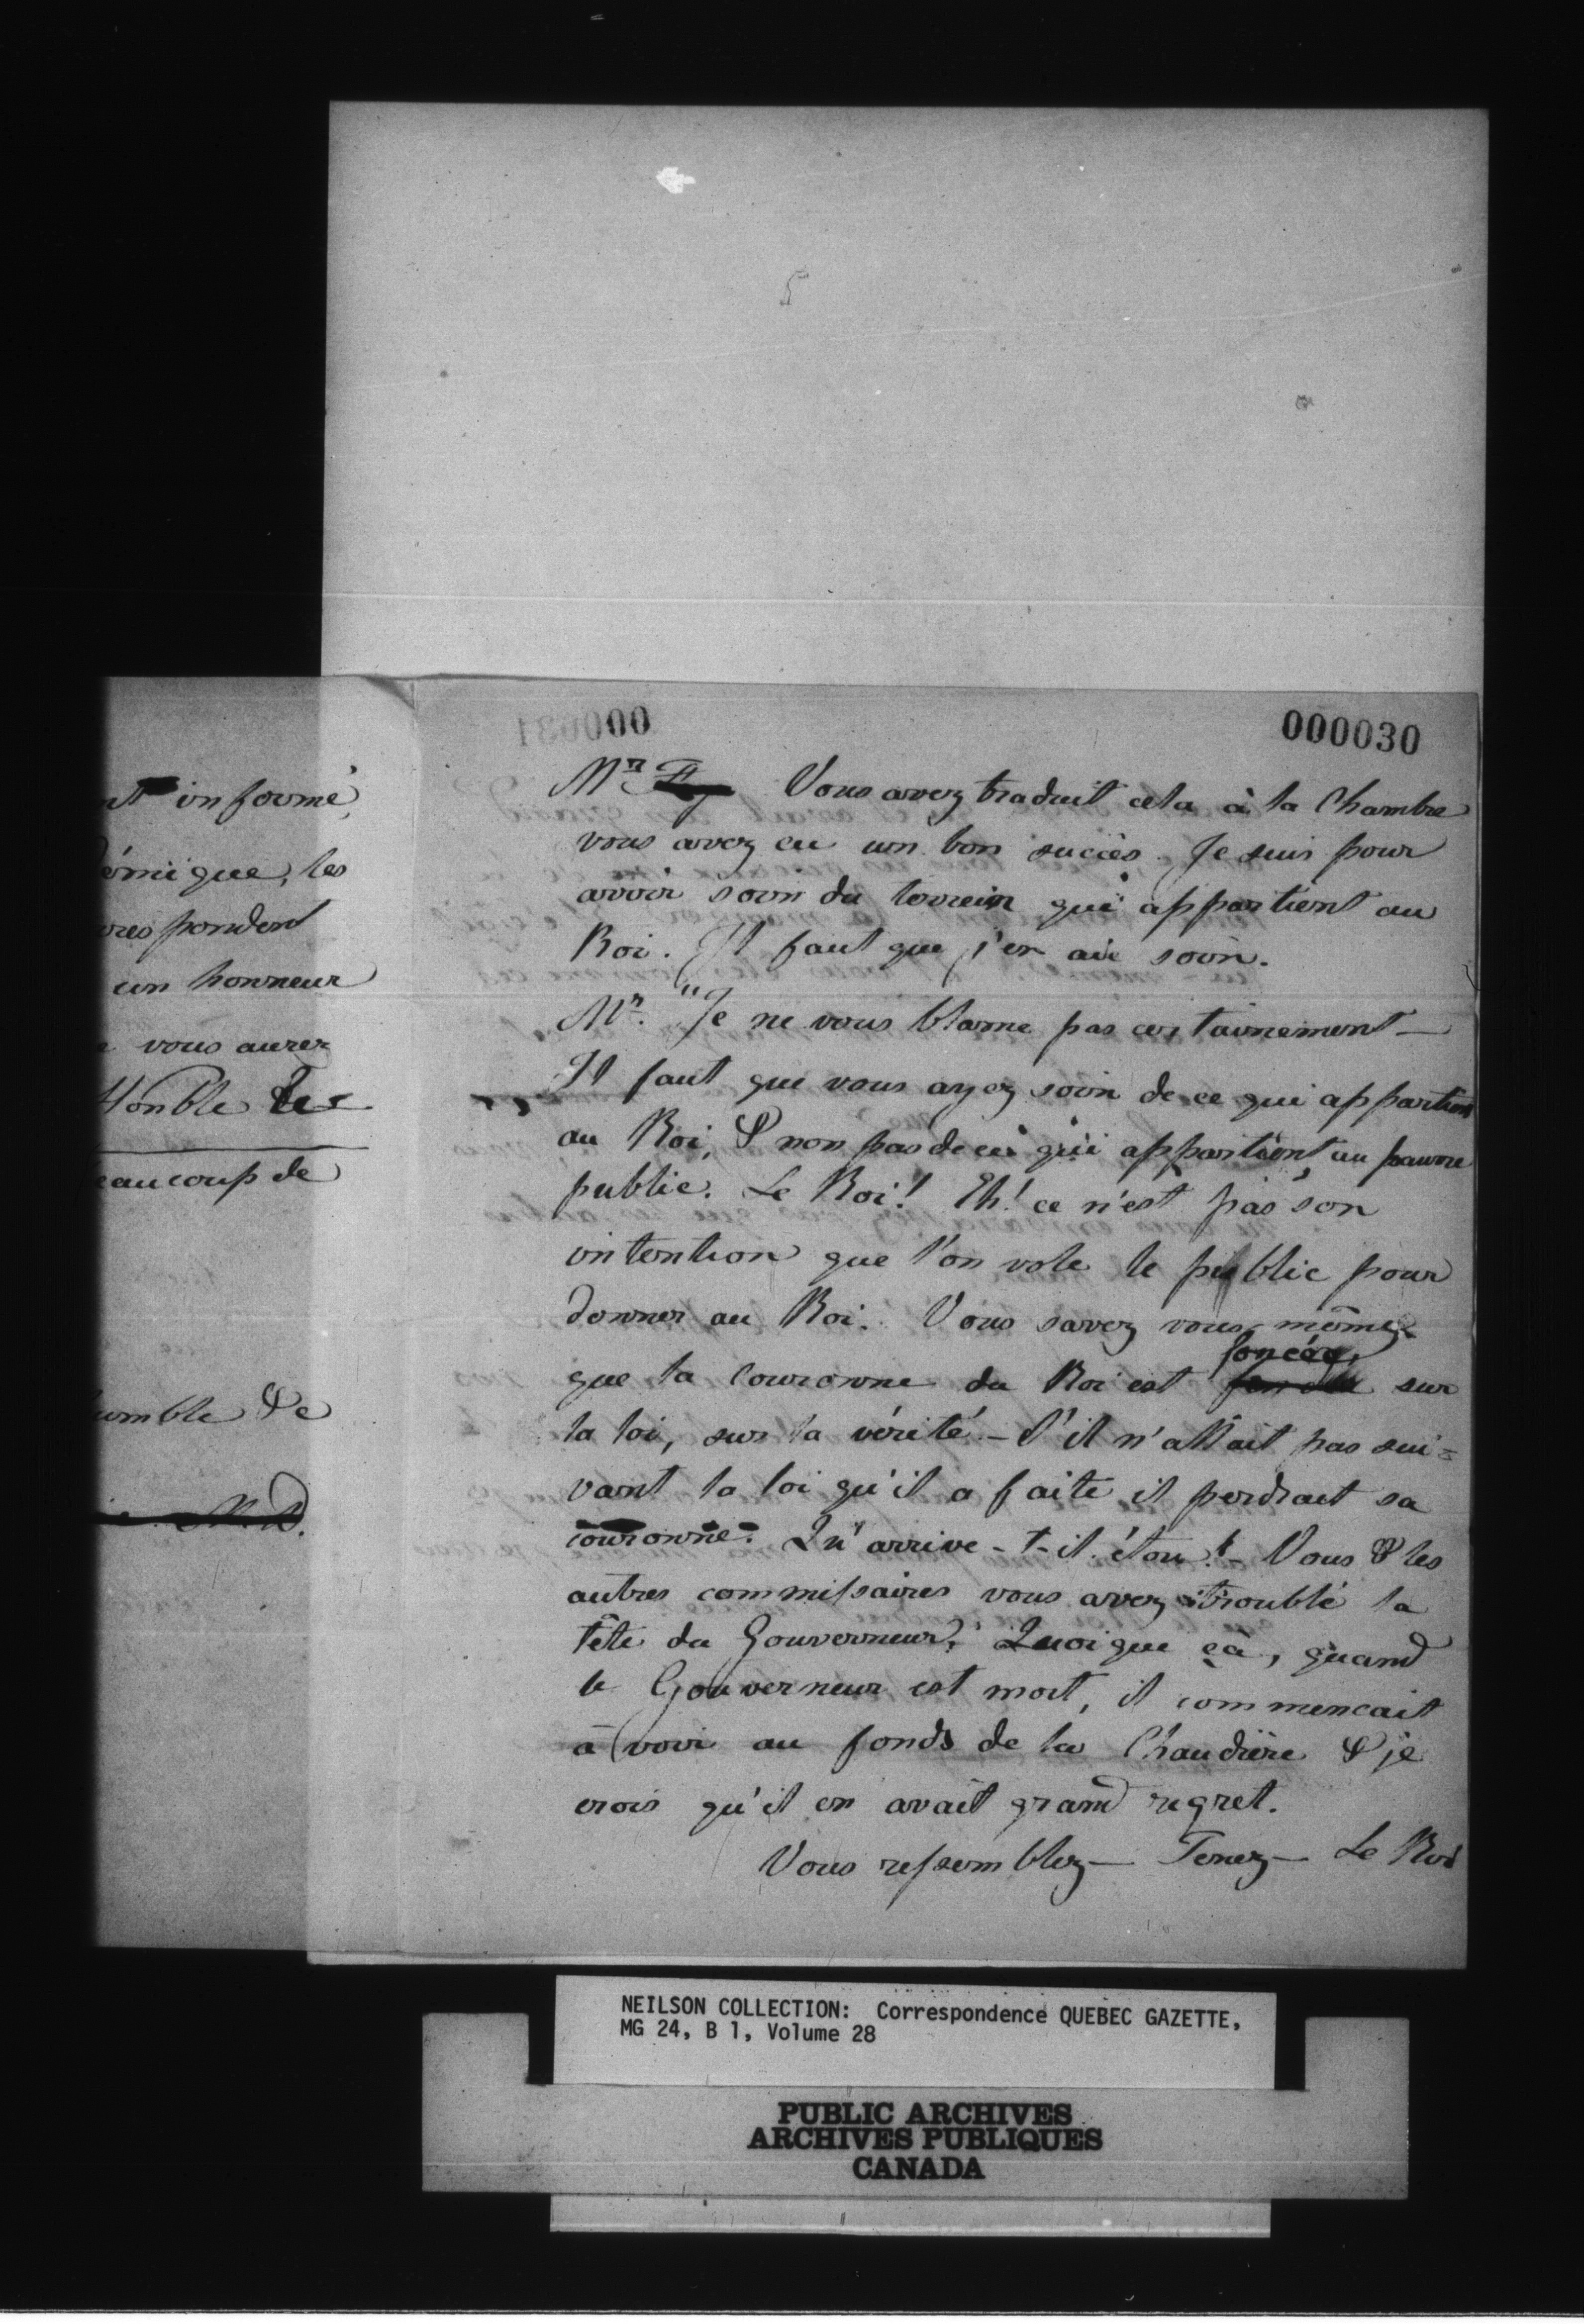 5
000030
nt informé,
émique, les
respondent
un honneur
e vous aurez
Honble Les
beaucoup de
umble &c
Mr. Vous avez traduit cela à la Chambre
vous avez eu un bon succès. Je suis pour
avoir soin du terrein qui appartient au
Roi. Il faut que j'en aie soin.
Mr. "Je ne vous blame pas certainement—
Il faut que vous ayez soin de ce qui appartient
au Roi, & non pas de ce qui appartient au pauvre
public. Le Roi! Eh! ce n'est pas son
intention que l'on vole le public pour
donner au Roi. Vous savez vous même
foncée,
que la Couronne du Roi est sur
la loi, sur la vérité. – S'il n'allait pas sui=
vant la loi qu'il a faite il perdrait sa
couronne. Qu'arrive-t-il étou! – Vous & les
autres commissaires vous avez troublé la
tête du Gouverneur. Quoique çà, quand
le Gouverneur est mort, il commencait
à voir au fonds de la Chaudière & je
crois qu'il en avait grand regret.
Vous ressemblez — Tenez — Le Roi
NEILSON COLLECTION: Correspondence QUEBEC GAZETTE,
MG 24, B 1, Volume 28
PUBLIC ARCHIVES
ARCHIVES PUBLIQUES
CANADA